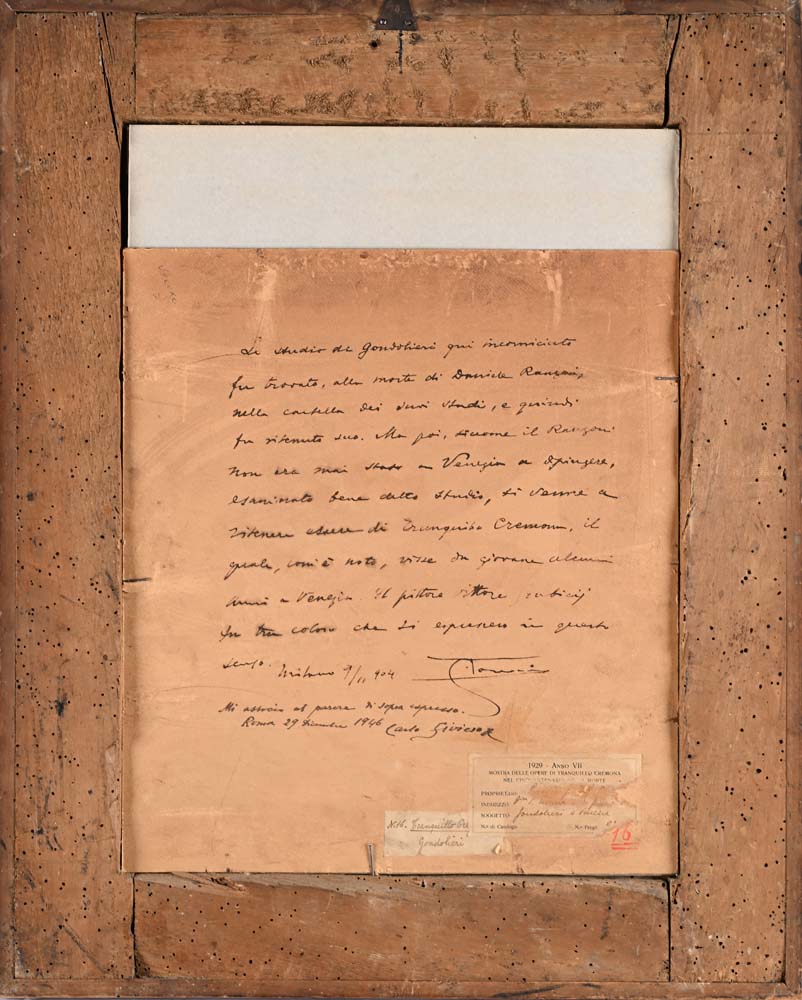 Lo studio di Gondolieri qui incorniciato
fu trovato, alla morte di Daniele Ranzoni,
nella cartella dei suoi studi, e quindi
fu ritenuto suo. Ma poi, siccome il Ranzoni
non era mai stato a Venezia a dipingere,
esaminato bene detto studio, si venne a
ritenere essere di Tranquillo Cremona, il
quale, com'è noto, visse da giovane alcuni
anni a Venezia. Il pittore Vittore Grubicy
fu tra coloro che si espressero in questo
senso. Milano 9/11 904
Mi associo al parere di sopra espresso.
Roma 29 Dicembre 1946 Carlo
1929 - ANNO VII
MOSTRA DELLE OPERE DI TRANQUILLO CREMONA
NEL CINQUANTENARIO MORTE
PROPRIETARIO:
INDIRIZZO:
SOGGETTO: Gondolieri a
N.o di Catalogo N.o Progr.
16
N.16. Tranquillo Cre
Gondolieri